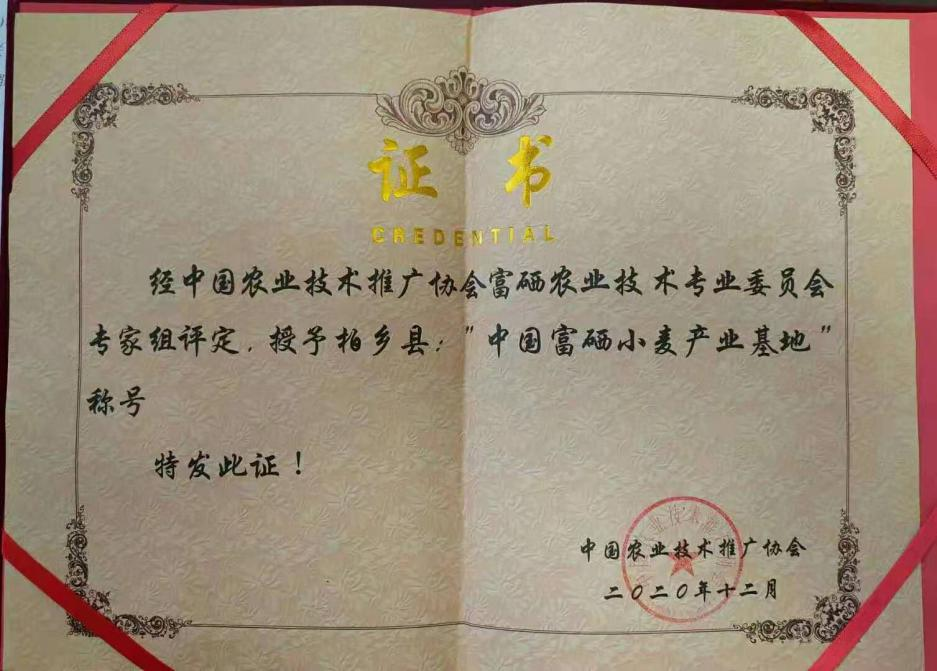 证 书
CREDENTIAL
经中国农业技术推广协会富硒农业技术专业委员会
专家组评定,授予柏乡县:"中国富硒小麦产业基地"
称号
特发此证!
中国农业技术推广协会
二〇二〇年十二月